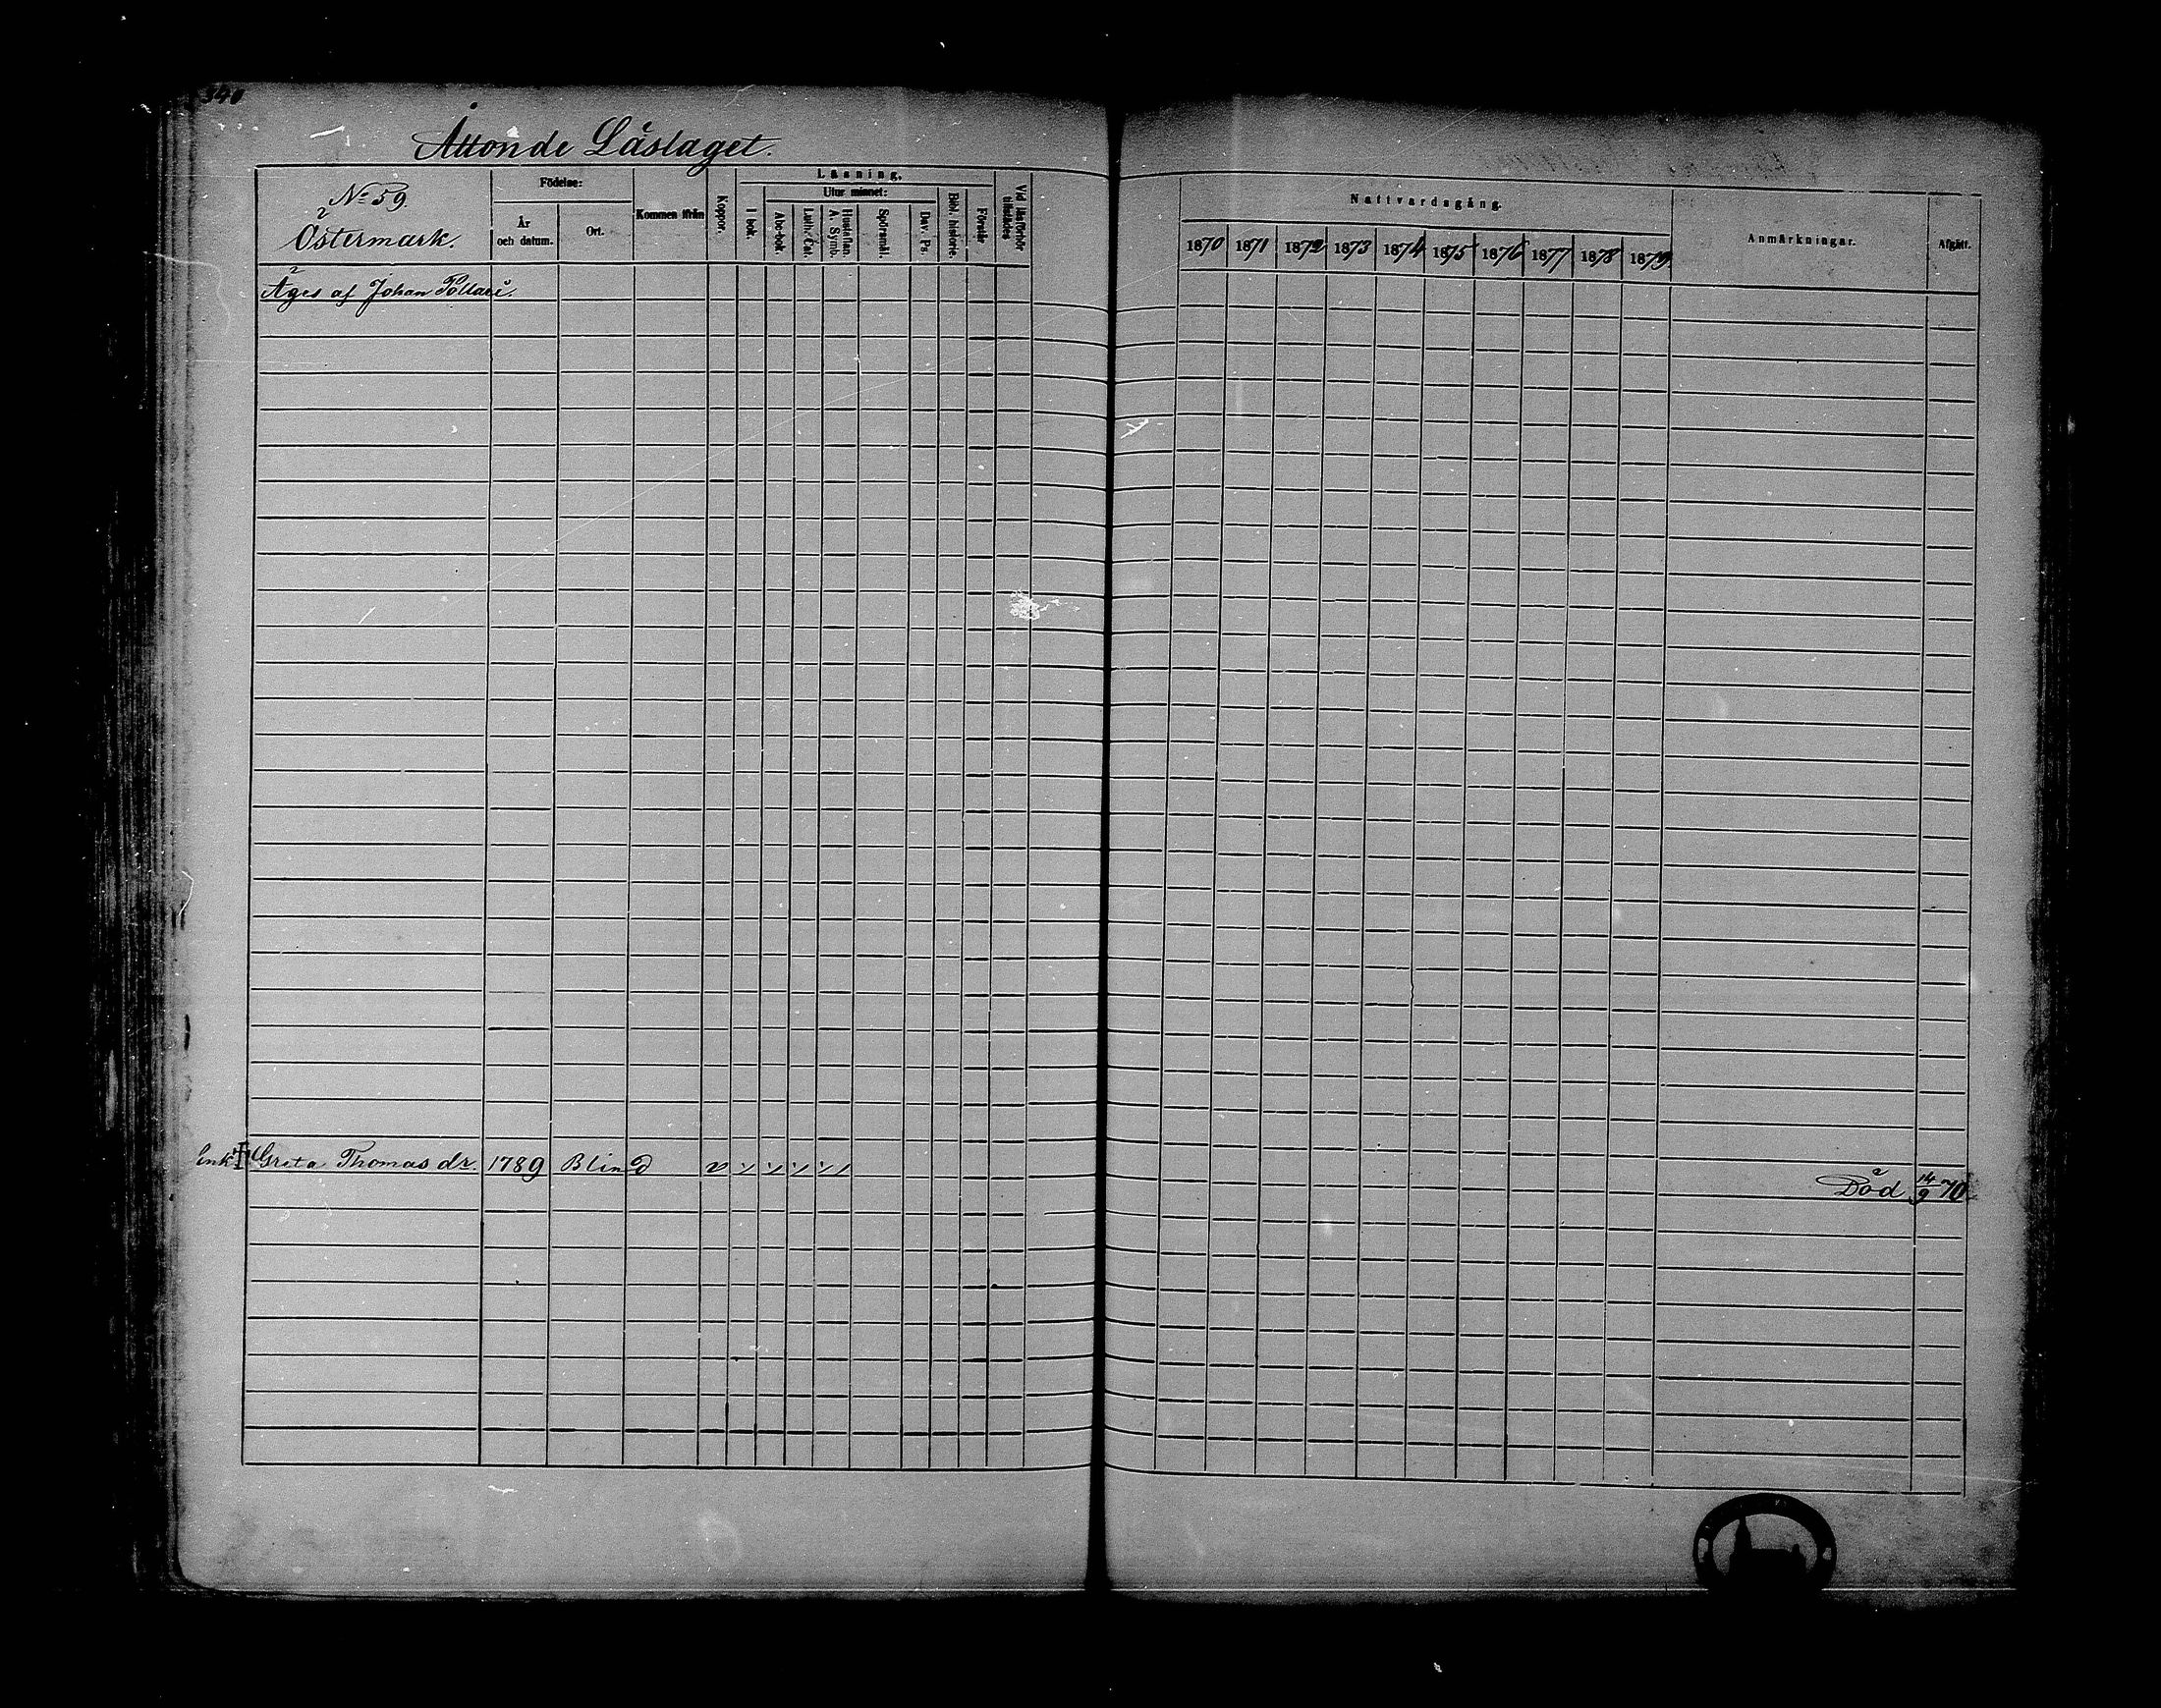 340
Åttonde Läslaget.
No 59
Östermark.
Födelse:
År och datum.
Ort.
Kommen ifrån
Koppor.
Läsning,
I bok.
Utur minnet:
Abc-bok.
Luth. Cat.
Hustaflan. A. Symb.
Spörsmål.
Dav. Ps.
Bibl. historie.
Förstår
Vid läsförhör tillstädes
Nattvardsgång.
1870 1871 1872 1873 1874 1875 1876 1877 1878 1879
Anmärkningar.
Afgått.
Äges af Johan Pollari.
Enk. Greta Thomas dr. 1789 Blind v
Död 14/9 70